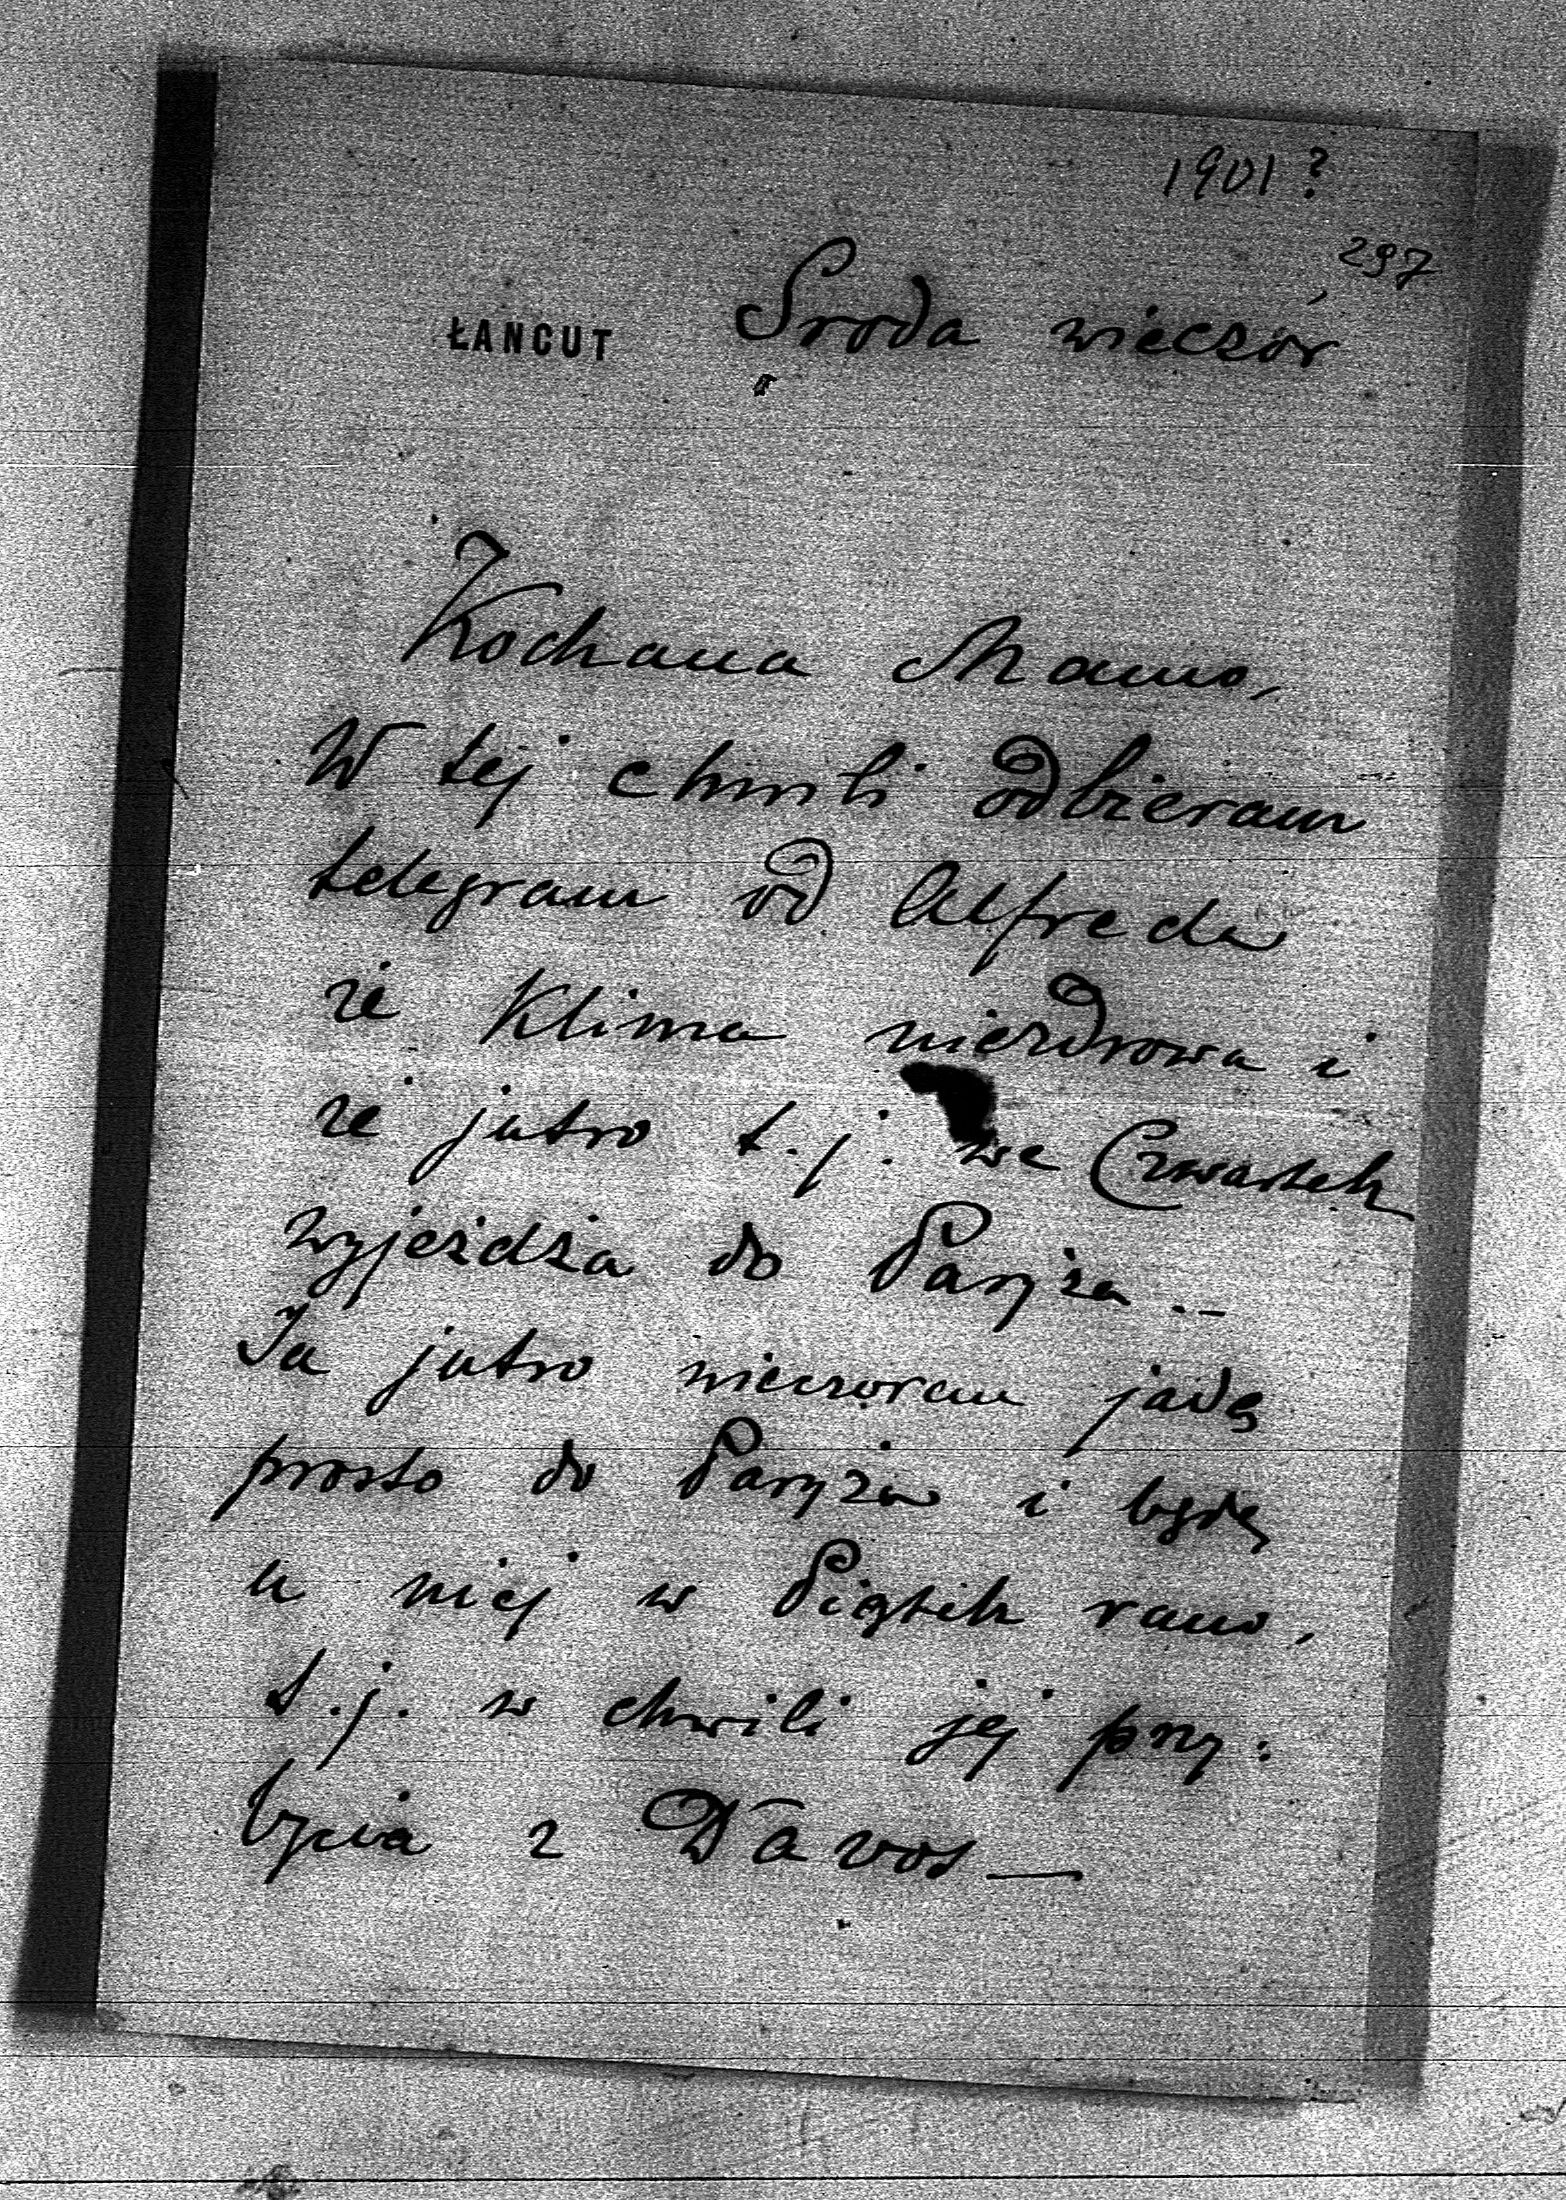 1901?
297
ŁANCUT Sroda wieczór
Kochana Mamo,
W tej chwili odbieram
telegram od Alfreda
że Klima niezdrowa i
że jutro t.j. we Czwartek
wyjeżdża do Paryża --
Ja jutro wieczorem jadę
prosto do Paryża i będę
u niej w Piątek rano,
t.j. w chwili jej przy:
bycia z Davos —